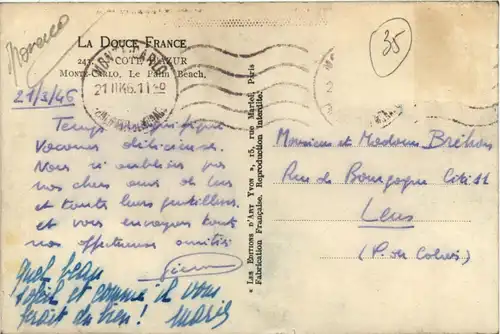 Monaco
LA DOUCE FRANCE
243. COTE D'AZUR
MONTE-CARLO, Le Palm Beach.
21/3/46
35
Temps magnifique
Vacances délicieuses.
Nous n'oublions pas
nos chers amis de Lens
et toute leurs gentillesses
et vous envoyons toute
nos affectueuses amitiés
Pierre
Quel beau
soleil et comme il vous
ferait du bien! Marie
« LES EDITIONS D'ART YVON », 15, rue Martel, Paris
Fabrication Française. Reproduction interdite.
Monsieur et Madame
Rue de Bourgogne Cité 11
Lens
(P. de Calais)